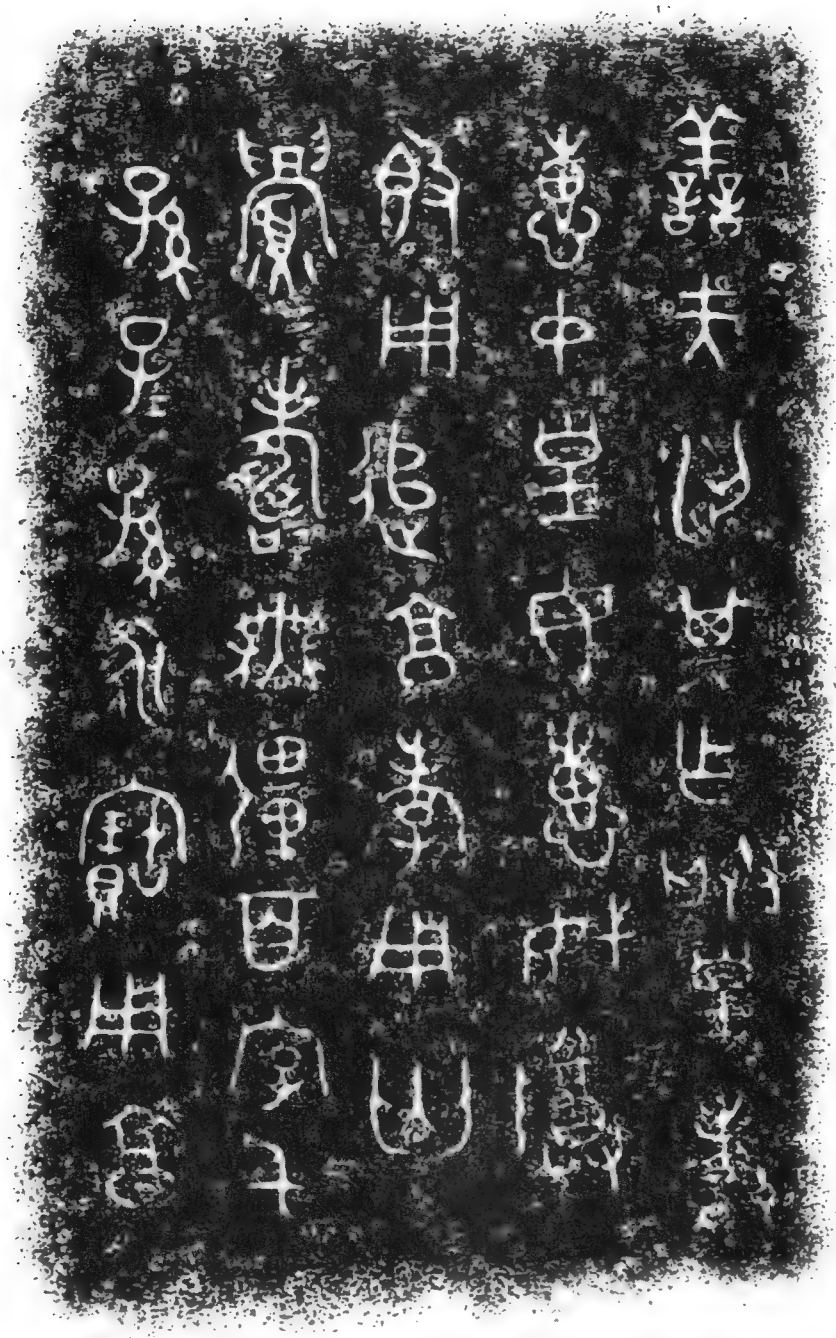 善夫梁其乍朕皇考
惠中皇母惠妣尊
簋用追享孝用匄
眉壽無疆百字千
孫子孫永寶用享